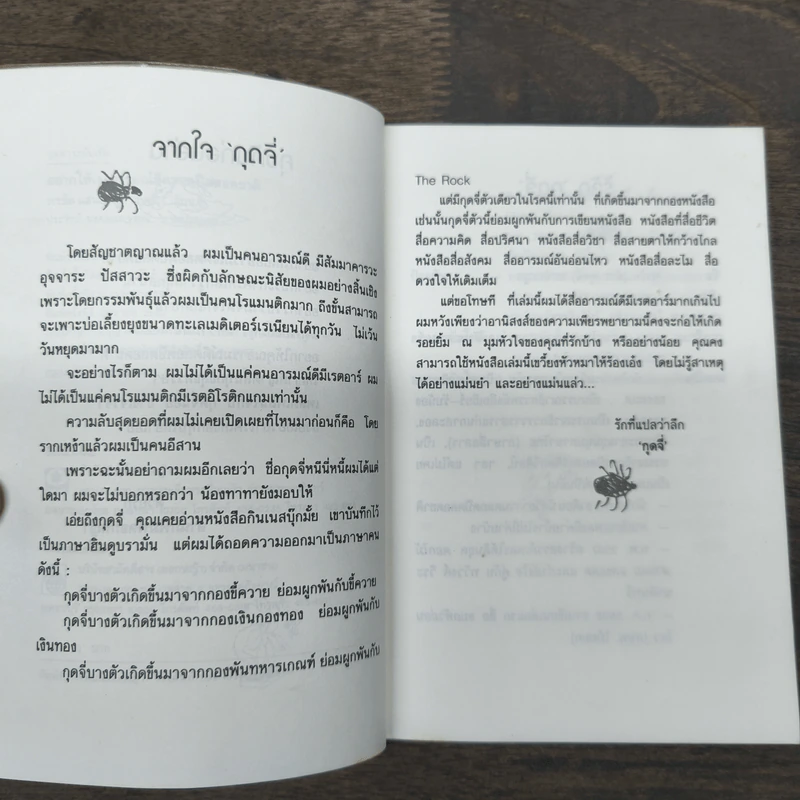 จากใจ 'กุดจี่'
โดยสัญชาตญาณแล้ว ผมเป็นคนอารมณ์ดี มีสัมมาคารวะ
อุจจาระ ปัสสาวะ ซึ่งผิดกับลักษณะนิสัยของผมอย่างสิ้นเชิง
เพราะโดยกรรมพันธุ์แล้วผมเป็นคนโรแมนติกมาก ถึงขั้นสามารถ
จะเพาะบ่อเลี้ยงยุงขนาดทะเลเมดิเตอร์เรเนียนได้ทุกวัน ไม่เว้น
วันหยุดมามาก
จะอย่างไรก็ตาม ผมไม่ได้เป็นแค่คนอารมณ์ดีมีเรตอาร์ ผม
ไม่ได้เป็นแค่คนโรแมนติกมีเรตอิโรติกแกมเท่านั้น
ความลับสุดยอดที่ผมไม่เคยเปิดเผยที่ไหนมาก่อนก็คือ โดย
รากเหง้าแล้วผมเป็นคนอีสาน
เพราะฉะนั้นอย่าถามผมอีกเลยว่า ชื่อกุดจี่หนีนี่หนี้ผมได้แต่
ใดมา ผมจะไม่บอกหรอกว่า น้องทาทายังมอบให้
เอ่ยถึงกุดจี่ คุณเคยอ่านหนังสือกินเนสบุ๊กมั้ย เขาบันทึกไว้
เป็นภาษาฮินดูบรามั่น แต่ผมได้ถอดความออกมาเป็นภาษาคน
ดังนี้ :
กุดจี่บางตัวเกิดขึ้นมาจากกองขี้ควาย ย่อมผูกพันกับขี้ควาย
กุดจี่บางตัวเกิดขึ้นมาจากกองเงินกองทอง ย่อมผูกพันกับ
เงินทอง
กุดจี่บางตัวเกิดขึ้นมาจากกองพันทหารเกณฑ์ ย่อมผูกพันกับ
The Rock
แต่มีกุดจี่ตัวเดียวในโรคนี้เท่านั้น ที่เกิดขึ้นมาจากกองหนังสือ
เช่นนั้นกุดจี่ตัวนี้ย่อมผูกพันกับการเขียนหนังสือ หนังสือที่สื่อชีวิต
สื่อความคิด สื่อปริศนา หนังสือสื่อวิชา สื่อสายตาให้กว้างไกล
หนังสือสื่อสังคม สื่ออารมณ์อันอ่อนไหว หนังสือสื่อละไม สื่อ
ดวงใจให้เติมเต็ม
แต่ขอโทษที ที่เล่มนี้ผมได้สื่ออารมณ์ดีมีเรตอาร์มากเกินไป
ผมหวังเพียงว่าอานิสงส์ของความเพียรพยายามนี้คงจะก่อให้เกิด
รอยยิ้ม ณ มุมหัวใจของคุณที่รักบ้าง หรืออย่างน้อย คุณคง
สามารถใช้หนังสือเล่มนี้เขวี้ยงหัวหมาให้ร้องเอ๋ง โดยไม่รู้สาเหตุ
ได้อย่างแม่นยำ และอย่างแม่นแล้ว...
รักที่แปลว่าลึก
'กุดจี่'